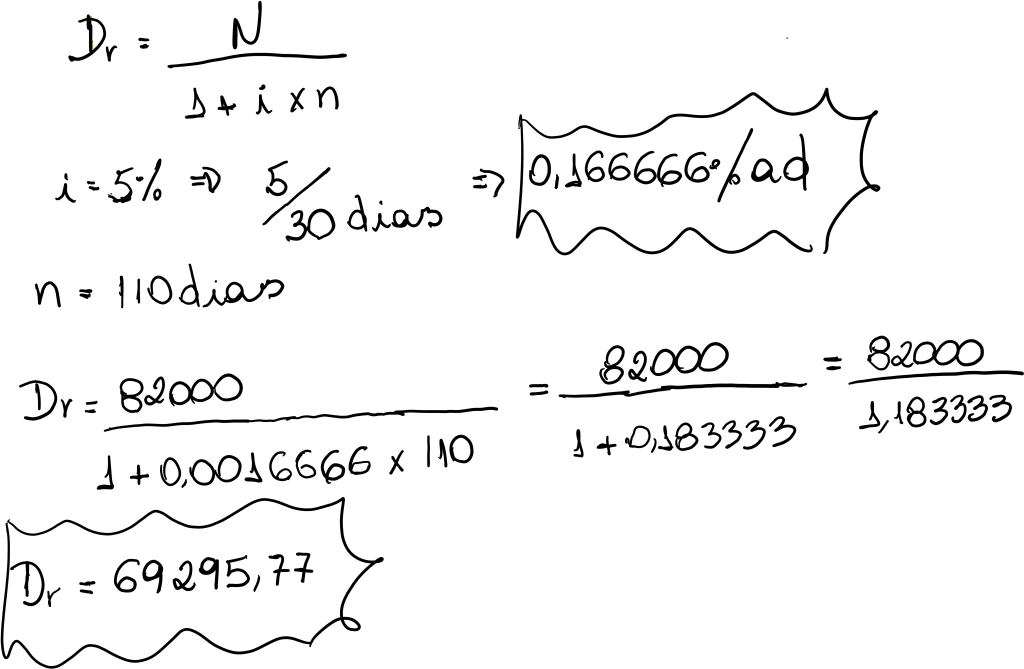 Dr = N / 1 + i x n
i = 5% => 5/30 dias => 0,166666% ad
n = 110 dias
Dr = 82000 / 1 + 0,0016666 x 110 = 82000 / 1 + 0,183333 = 82000 / 1,183333
Dr = 69295,77